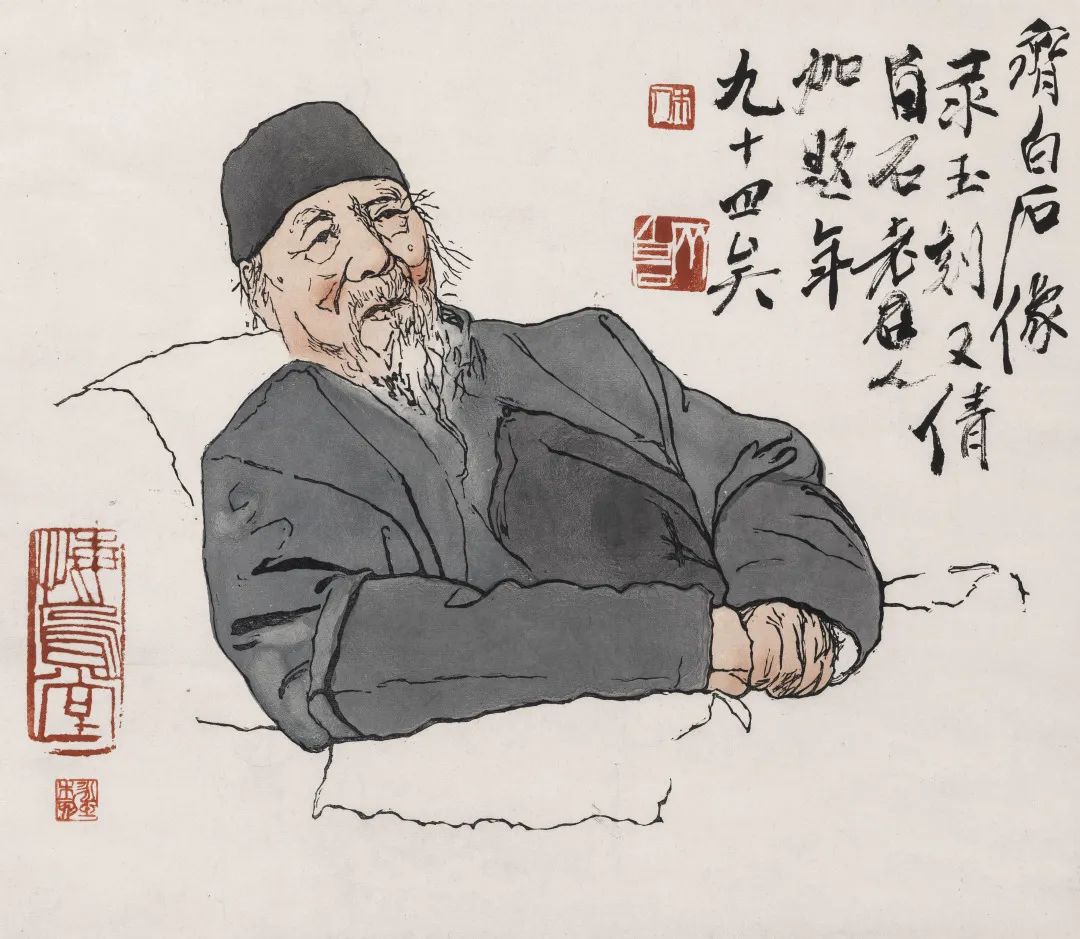 齊白石像
永玉刻又倩
白石老人
加題年
九十四矣
木人